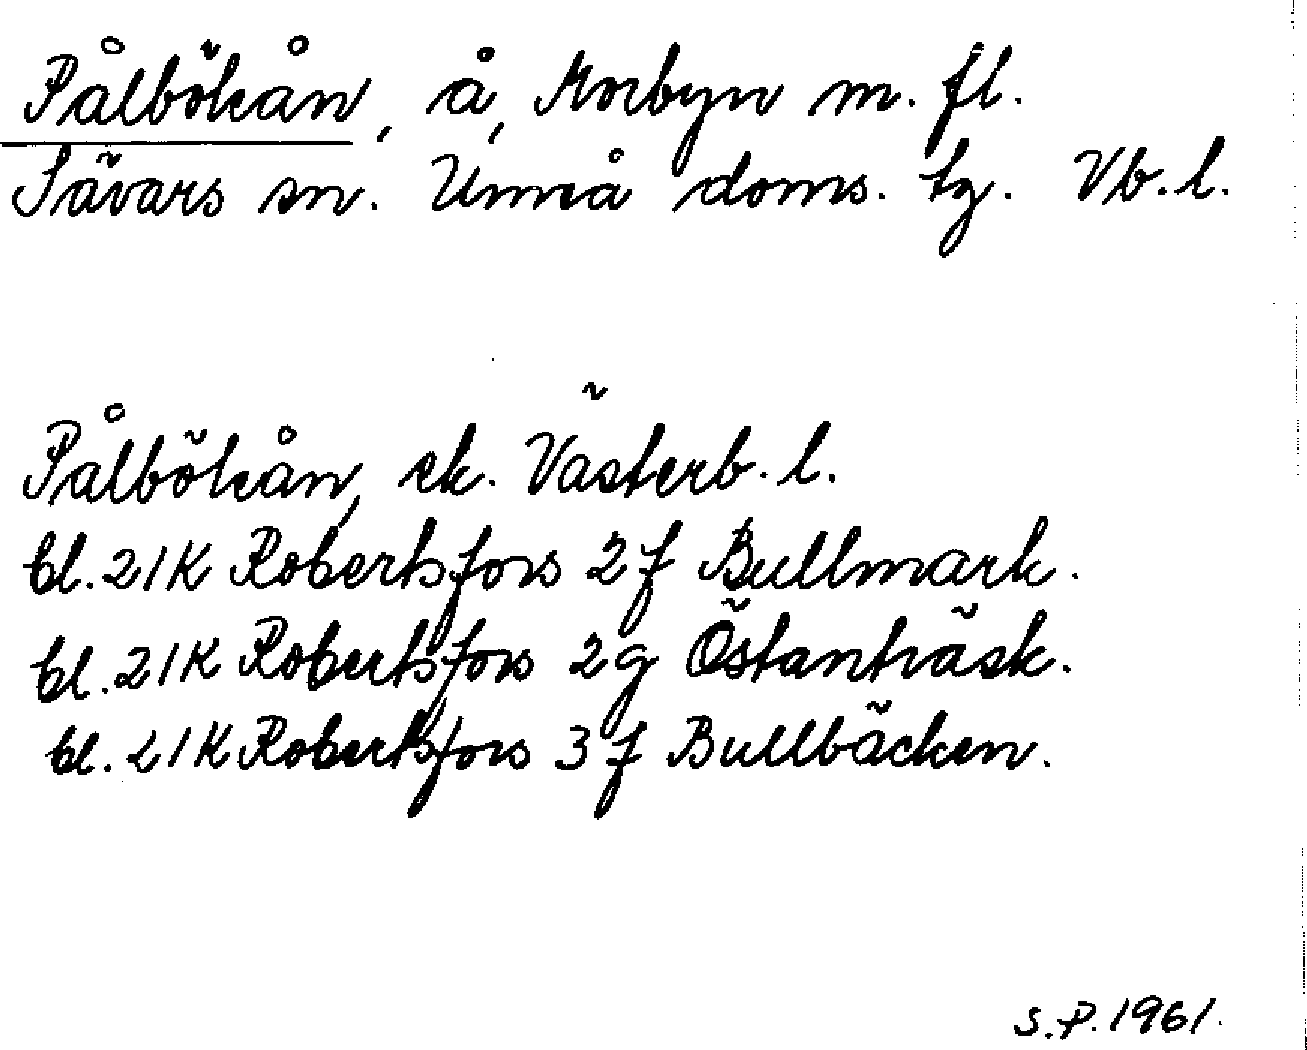 Pålbölån, å, Norbyn m. fl.
Sävars sn. Umeå doms. tg. Vb. l.
Pålbölån, ek. Västerb. l.
bl. 21K Robertsfors 2f Bullmark.
bl. 21K Robertsfors 2g Östanträsk.
bl. 21K Robertsfors 3f Bullbäcken.
S.P. 1961.